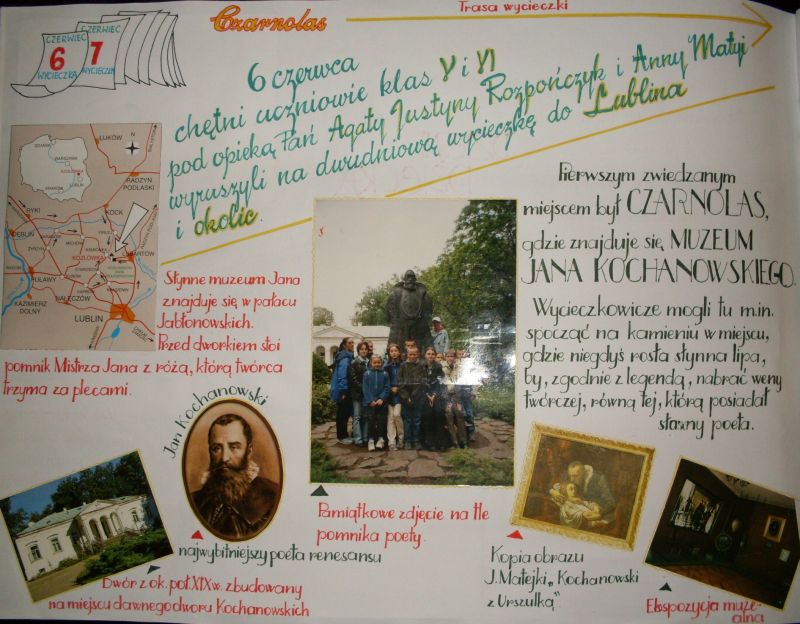 Czarnolas
Trasa wycieczki
CZERWIEC
6
WYCIECZKA
CZERWIEC
7
WYCIECZKA
6 czerwca
chętni uczniowie klas V i VI
pod opieką Pań Agaty Justyny Rozpończyk i Anny Matyi
wyruszyli na dwudniową wycieczkę do Lublina
i okolic.
ŁUKÓW
RADZYŃ
PODLASKI
RYKI
KOCK
DĘBLIN
KOZŁÓWKA
PUŁAWY
NAŁĘCZÓW
KAZIMIERZ
DOLNY
LUBLIN
Pierwszym zwiedzanym
miejscem był CZARNOLAS,
gdzie znajduje się MUZEUM
JANA KOCHANOWSKIEGO.
Wycieczkowicze mogli tu m.in.
spocząć na kamieniu w miejscu,
gdzie niegdyś rosła słynna lipa,
by, zgodnie z legendą, nabrać weny
twórczej, równą tej, którą posiadał
sławny poeta.
Słynne muzeum Jana
znajduje się w pałacu
Jabłonowskich.
Przed dworkiem stoi
pomnik Mistrza Jana z różą, którą twórca
trzyma za plecami.
Jan Kochanowski
najwybitniejszy poeta renesansu
Pamiątkowe zdjęcie na tle
pomnika poety.
Kopia obrazu
J. Matejki „Kochanowski
z Urszulką"
Dwór z ok. poł. XIX w. zbudowany
na miejscu dawnego dworu Kochanowskich
Ekspozycja muze-
alna